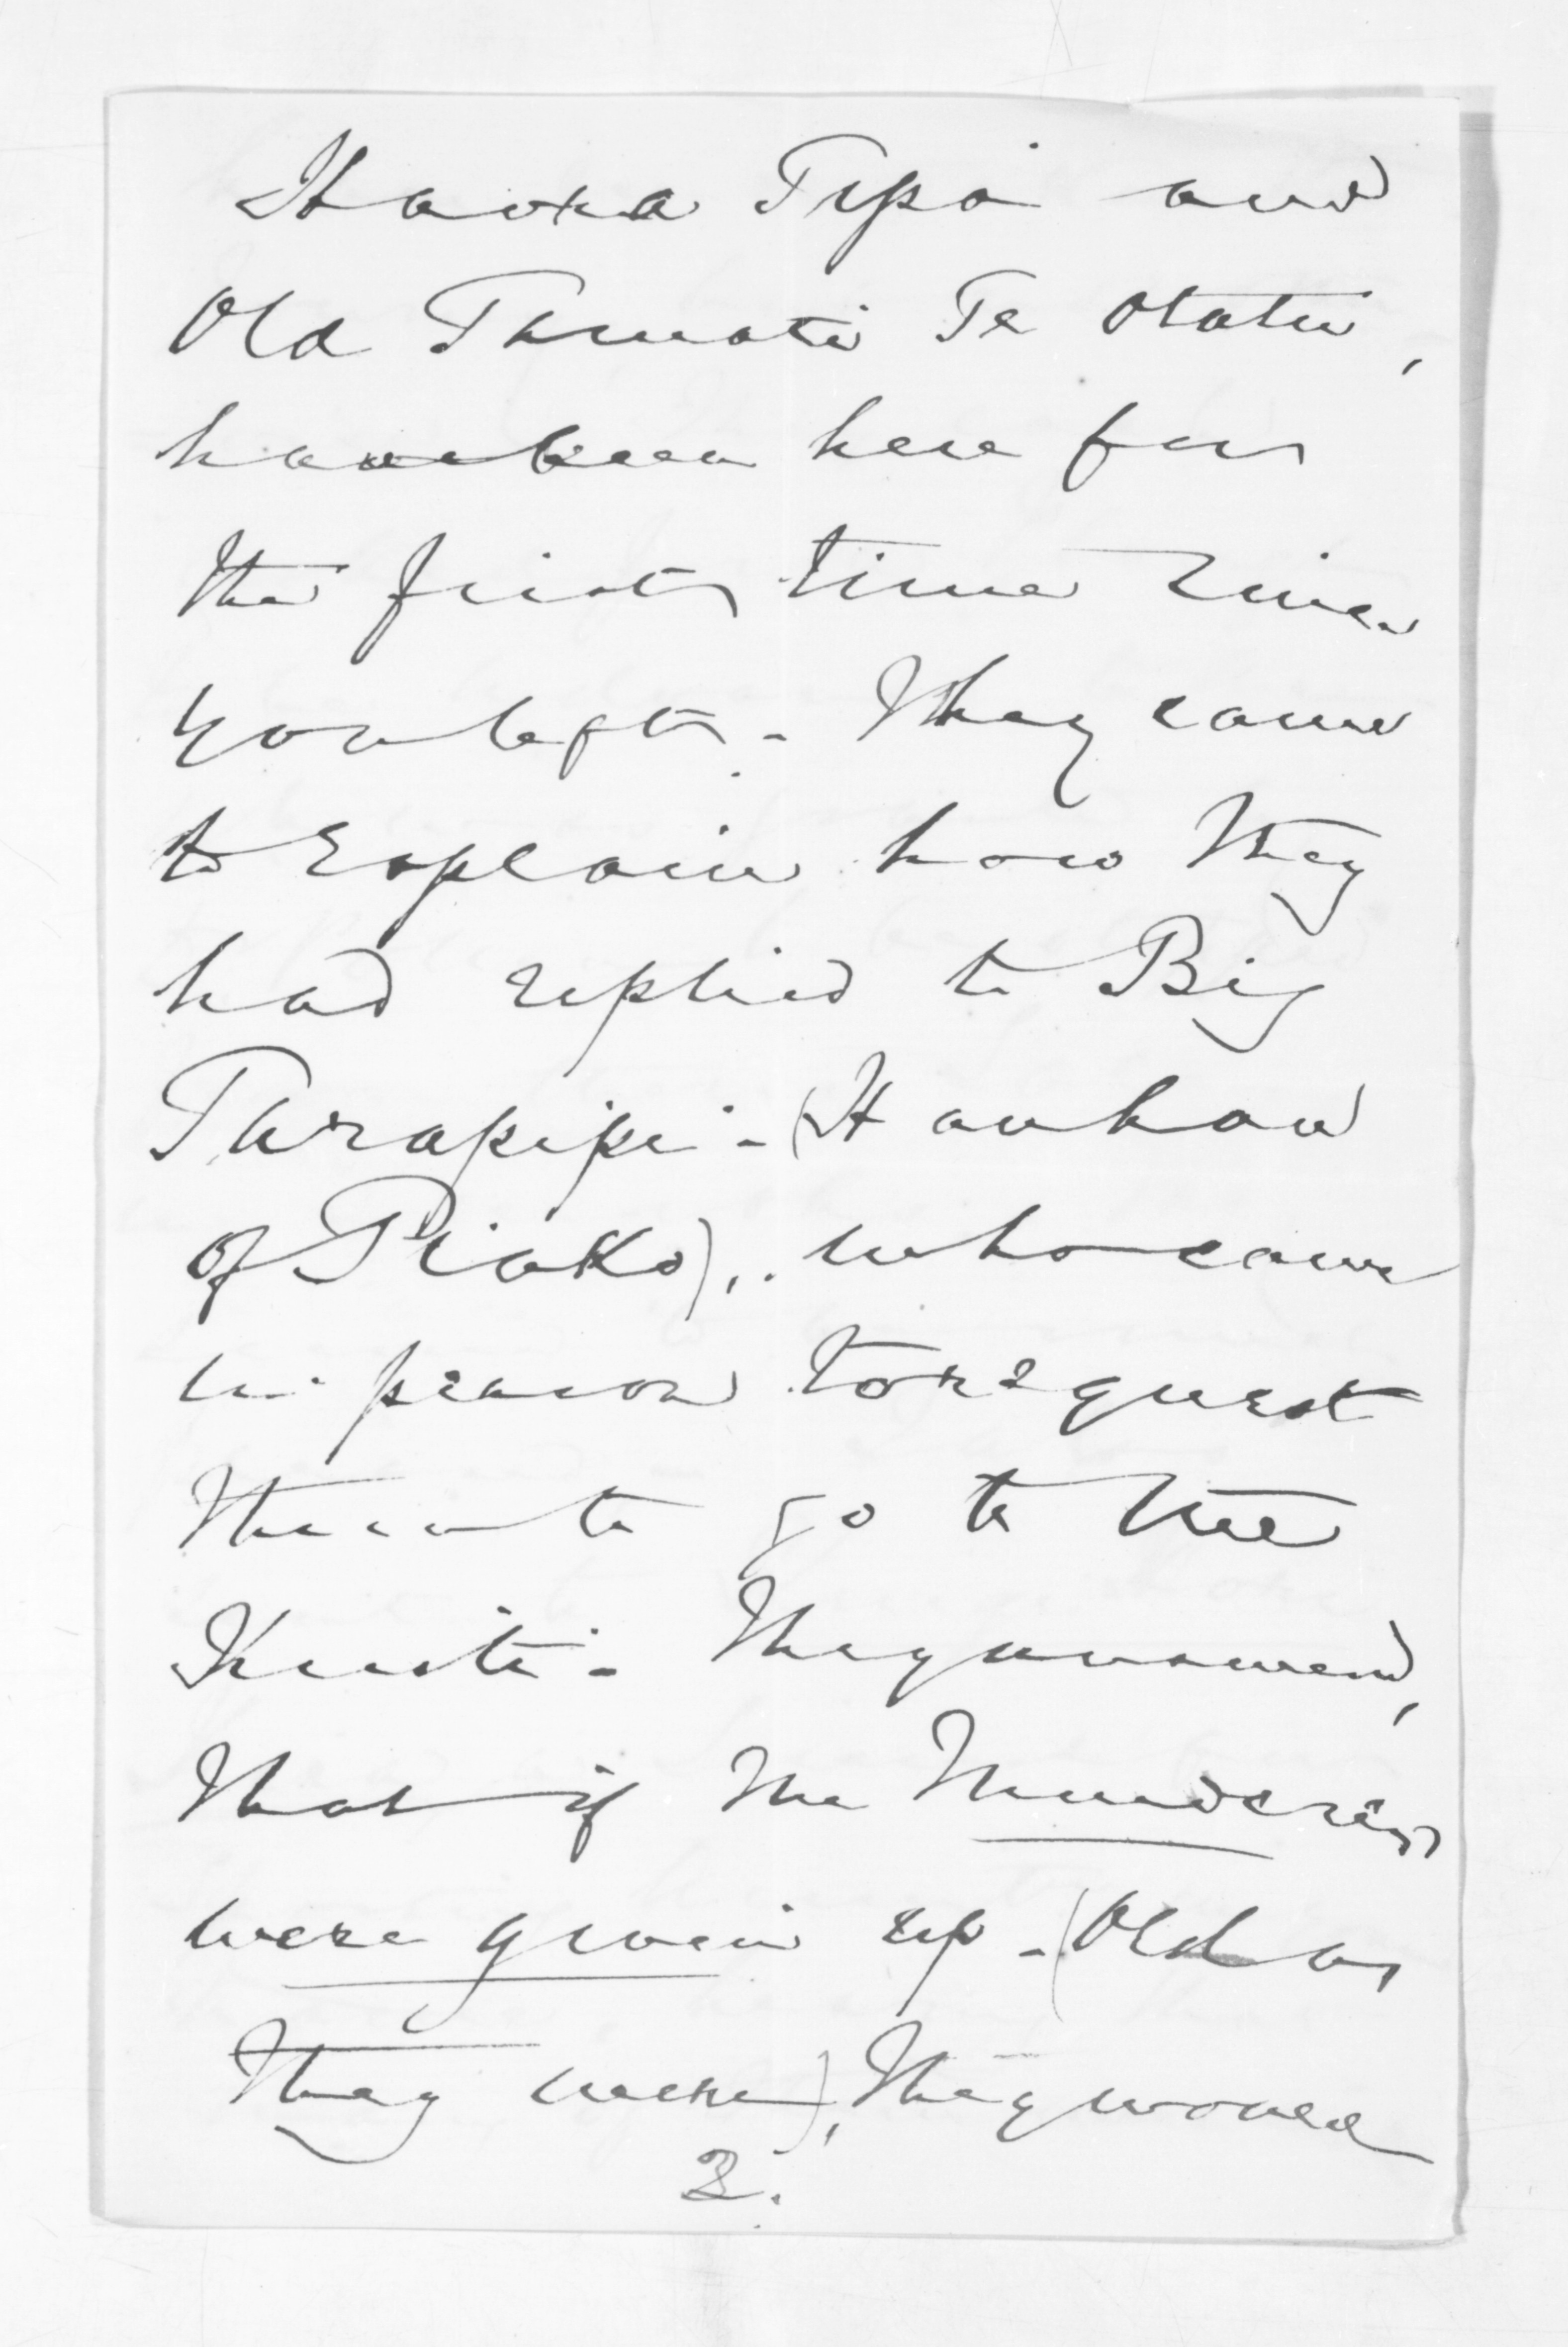 Haora Tipa and
Old Tamati Te Otatu,
have been here for
the first time since
you left - They came
to explain how they
had replied to Big
Tarapipi - (Hauhau
of Piako), who came
in person to request
them to go to the
They answered,
that if the Murderers
were given up - (Old as
they were), they would